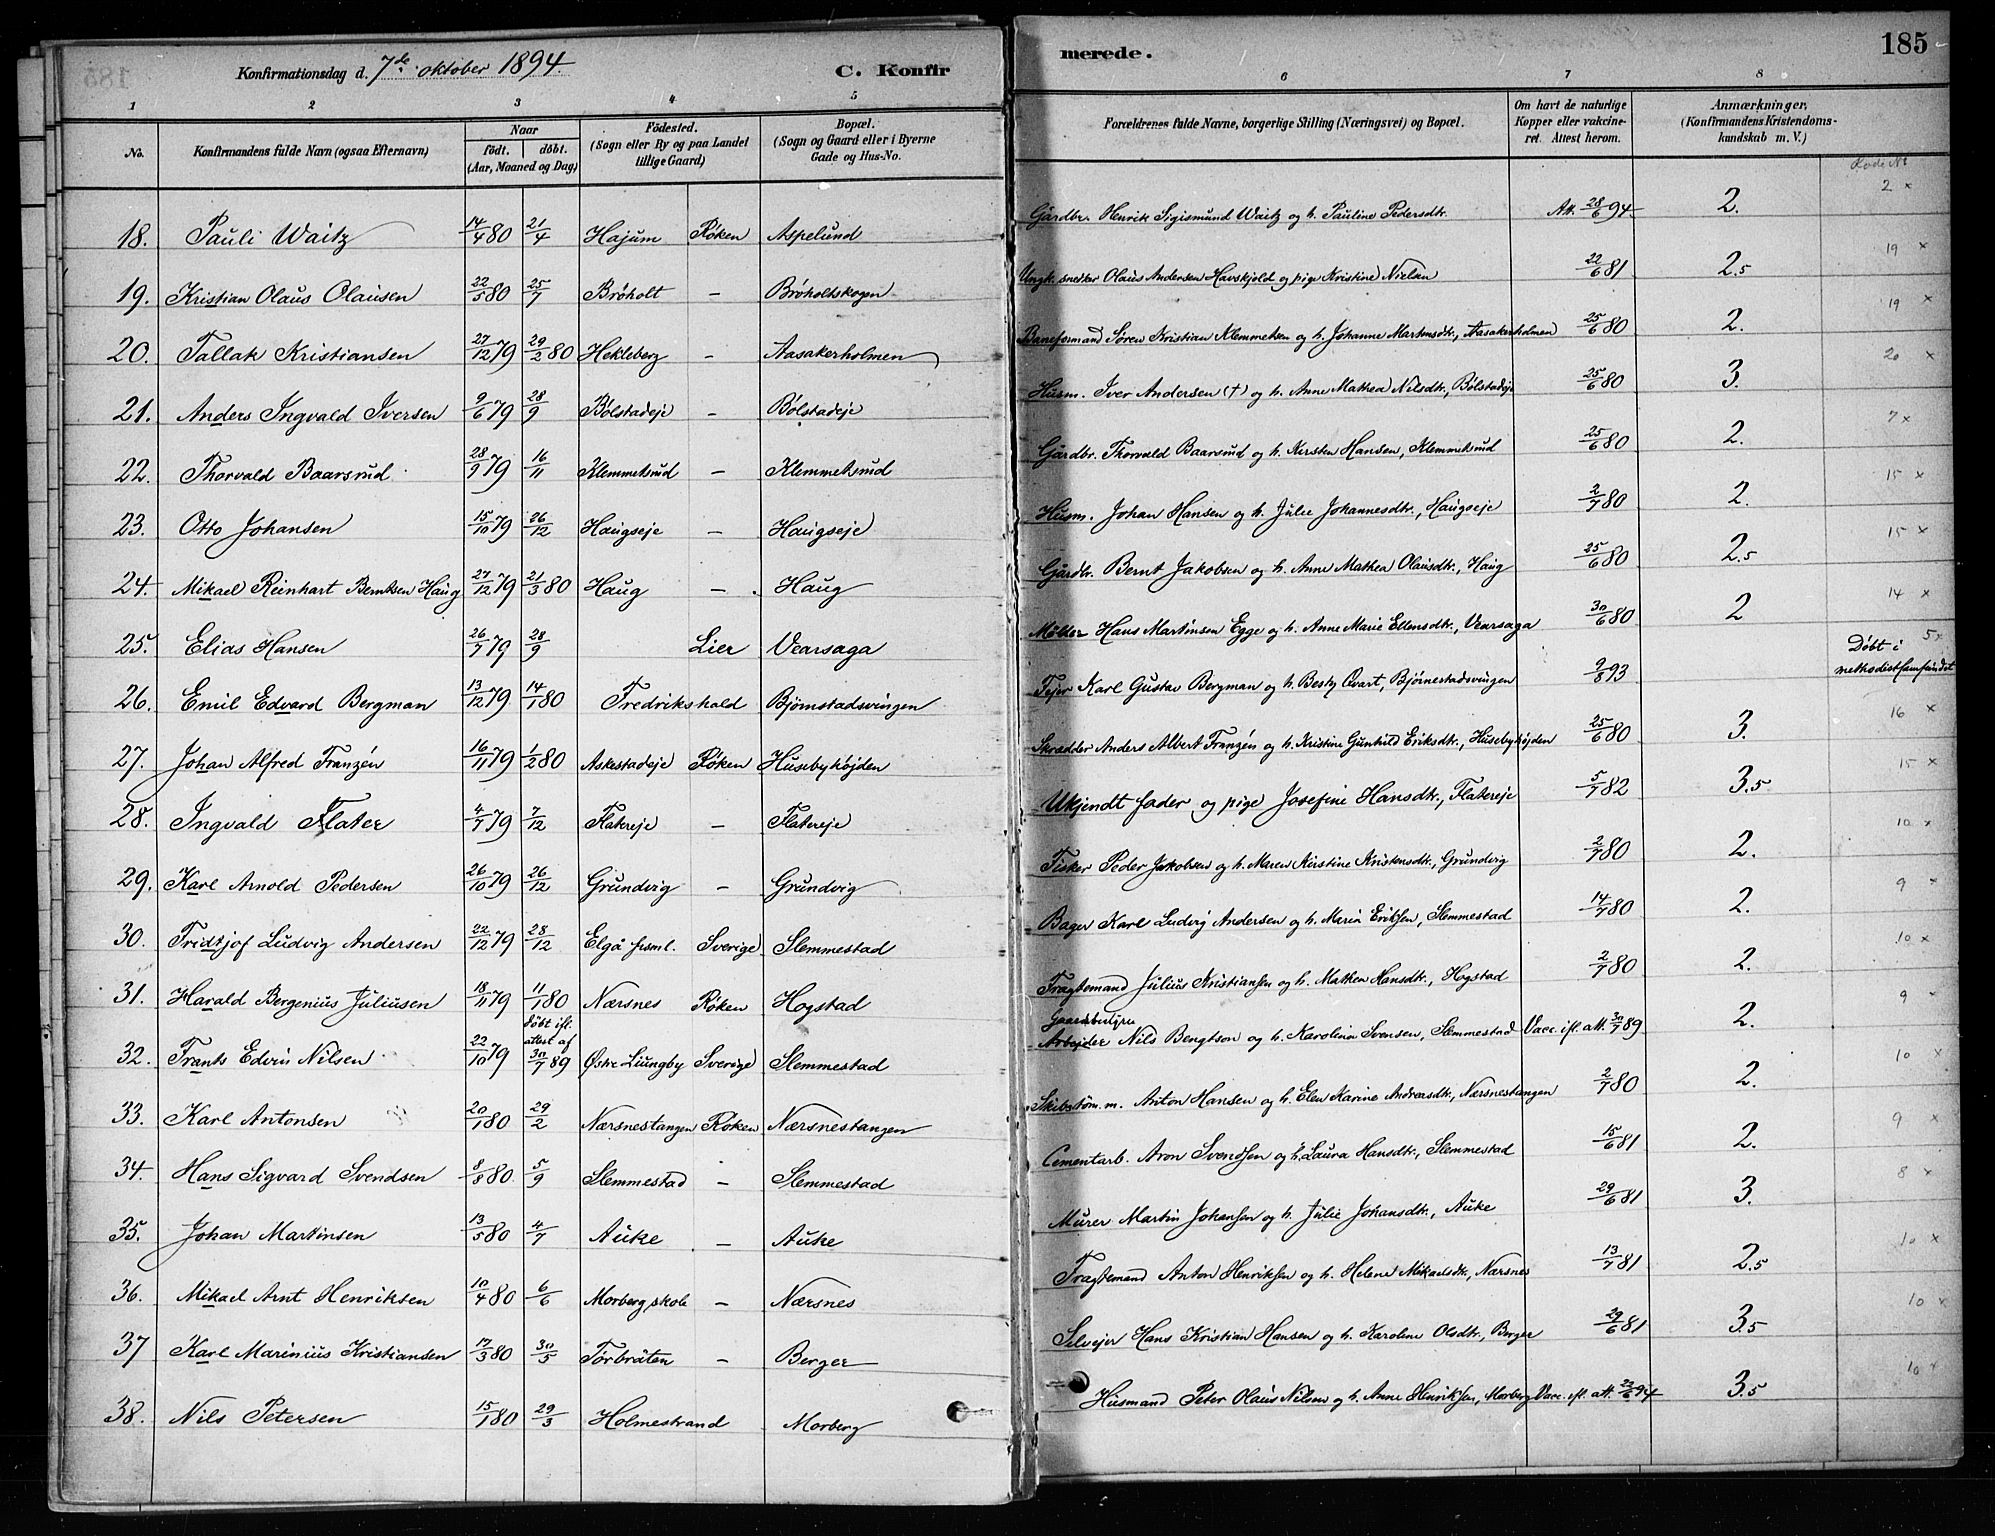 Konfirmationsdag d. 7de oktober 1894. C. Konfir
merede. 185
1 2 3 4 5 6 7 8
No. Konfirmandens fulde Navn (ogsaa Efternavn) Naar født. døbt. (Aar, Maaned og Dag) Födested. (Sogn eller By og paa Landet tillige Gaard) Bopæl. (Sogn og Gaard eller i Byerne Gade og Hus-No.
Forældrenes fulde Navne, borgerlige Stilling (Næringsvei) og Bopæl. Om havt de naturlige Kopper eller vakcineret. Attest herom. Anmærkninger, (Konfirmandens Kristendomskundskab m. V.)
18. Pauli Waitz 14/4 80 21/4 Hajum Røken Aspelund Gårdbr. Henrik Sigismund Waitz og h. Pauline Pedersdtr. Att. 28/6 94 2. 2 x
19. Kristian Olaus Olausen 22/5 80 25/7 Brøholt – Brøholtskogen Ungk. snedker Olaus Andersen Havskjold og pige Kristine Nielsen 22/6 81 2.5 19 x
20. Tallak Kristiansen 27/12 79 29/2 80 Hekleberg – Aasakerholmen Baneformand Søren Kristian Klemmetsen og h. Johanne Martensdtr., Aasakerholmen 25/6 80 2. 19 x
21. Anders Ingvald Iversen 9/6 79 28/9 Bølstadeje – Bølstadeje Husm. Iver Andersen (†) og h. Anne Mathea Nilsdtr., Bølstadeje 25/6 80 3. 20 x
22. Thorvald Baarsrud 28/9 79 16/11 Klemmetsrud – Klemmetsrud Gårdbr. Thorvald Baarsrud og h. Kersten Hansen, Klemmetsrud 25/6 80 2. 7 x
23. Otto Johansen 15/10 79 26/12 Haugseje – Haugseje Husm. Johan Hansen og h. Julie Johannesdtr., Haugseje 2/7 80 2. 15 x
24. Mikael Reinhart Berntsen Haug 27/12 79 21/3 80 Haug – Haug Gårdbr. Bernt Jakobsen og h. Anne Mathea Olausdtr., Haug 25/6 80 2.5 15 x
25. Elias Hansen 26/7 79 28/9 Lier Vearsaga Møller Hans Martinsen Egge og h. Anne Marie Ellensdtr., Vearsaga 30/6 80 2 14 x
26. Emil Edvard Bergman 13/12 79 14/1 80 Fredrikshald Bjørnstadsvingen Fejer Karl Gustav Bergman og h. Besty Qvart, Bjørnestadsvingen 9/8 93 Døbt i methodistsamfundet 5 x
27. Johan Alfred Franzén 16/11 79 1/2 80 Askestadeje Røken Husebyhøjden Skrædder Anders Albert Franzén og h. Kristine Gunhild Eriksdtr., Husebyhøjden 25/6 80 3. 16 x
28. Ingvald Flater 4/7 79 7/12 Flatereje – Flatereje Ukjendt fader og pige Josefine Hansdtr., Flatereje 5/7 82 3.5 15 x
29. Karl Arnold Pedersen 26/10 79 26/12 Grundvig – Grundvig Fisker Peder Jakobsen og h. Maren Kirstine Kristensdtr., Grundvig 2/7 80 2. 10 x
30. Fridtjof Ludvig Andersen 22/12 79 28/12 Elgå fsml. Sverige Slemmestad Bager Karl Ludvig Andersen og h. Maria Eriksen, Slemmestad 14/7 80 2. 9 x
31. Harald Bergenius Juliusen 18/11 79 11/1 80 Nærsnes Røken Hogstad Fragtemand Julius Kristiansen og h. Mathea Hansdtr., Hogstad 2/7 80 2. 10 x
32. Frants Edvin Nilsen 22/10 79 døbt ifl. attest af 30/7 89 Østre Liungby Sverige Slemmestad Gaardsbestyrer Arbejder Nils Bengtson og h. Karolina Svensen, Slemmestad Vacc. ifl. att. 30/7 89 2. 9 x
33. Karl Antonsen 20/1 80 29/2 Nærsnestangen Røken Nærsnestangen Skibstøm.m. Anton Hansen og h. Elen Karine Andreasdtr., Nærsnestangen 2/7 80 2. 10 x
34. Hans Sigvard Svendsen 8/8 80. 5/9 Slemmestad – Slemmestad Cementarb. Aron Svendsen og h. Laura Hansdtr., Slemmestad 15/6 81 2. 9 x
35. Johan Martinsen 13/5 80 4/7 Auke – Auke Murer Martin Johansen og h. Julie Johansdtr., Auke 29/6 81 3. 8 x
36. Mikael Arnt Henriksen 10/4 80 6/6 Morberg skole – Nærsnes Fragtemand Anton Henriksen og h. Helene Mikaelsdtr., Nærsnes 13/7 81 2.5 10 x
37 Karl Marinius Kristiansen 17/3 80 30/5 Torbråten – Berger Selvejer Hans Kristian Hansen og h. Karoline Olsdtr., Berger 29/6 81 3.5 10 x
38. Nils Petersen 15/1 80 29/3 Holmestrand Morberg Husmand Peter Olaus Nilsen og h. Anne Henriksen, Morberg Vacc. ifl. att. 22/6 94 3.5 10 x